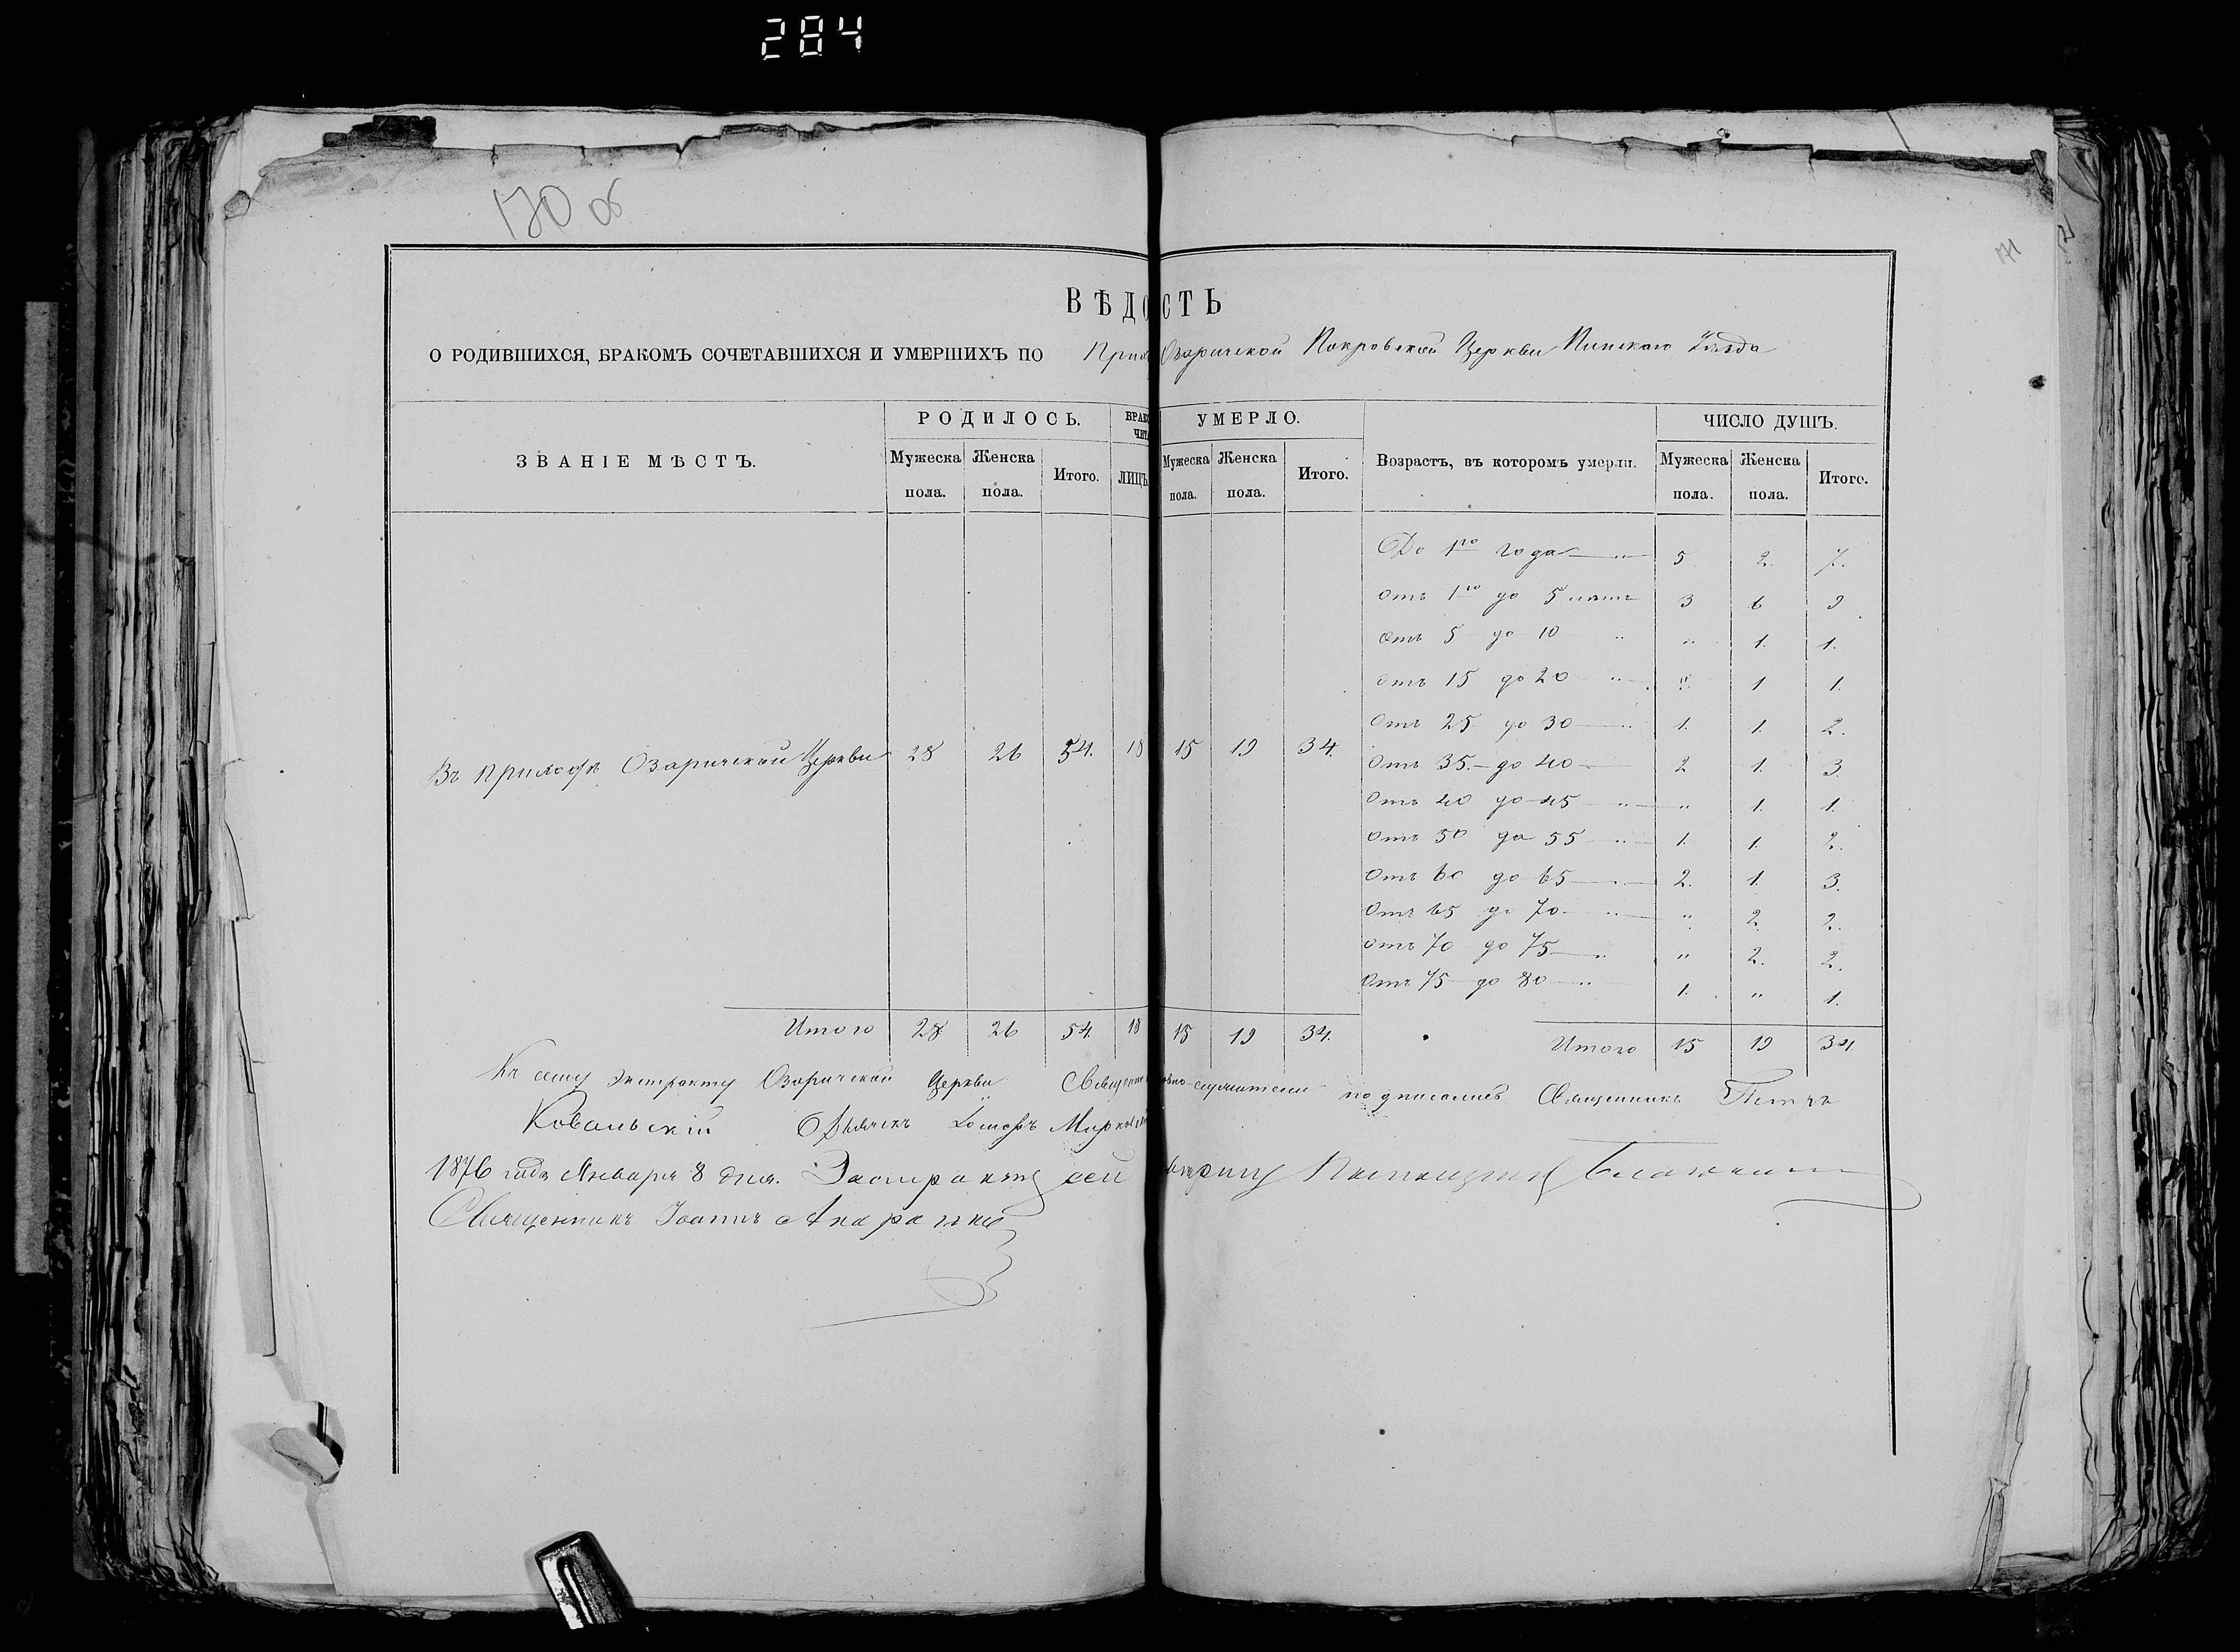 284
170 об
171
ВѢДО СТЬ
О РОДИВШИХСЯ, БРАКОМЪ СОЧЕТАВШИХСЯ И УМЕРШИХЪ ПО При Озаричской Покровской Церкви Пинскаго Уѣзда
ЗВАНІЕ МѢСТЪ. РОДИЛОСЬ. УМЕРЛО. Возрастъ, въ которомъ умерли. ЧИСЛО ДУШЪ.
Мужеска пола. Женска пола. Итого. ЛИЦЪ Мужеска пола. Женска пола. Итого. Мужеска пола. Женска пола. Итого.
До 1го года 5 2. 7.
Отъ 1го до 5 лѣтъ 3 6 9
Отъ 5 до 10 " " 1. 1.
Отъ 15 до 20 " " 1 1.
Отъ 25 до 30 " 1. 1. 2.
Въ приходѣ Озаричской Церкви 28 26 54. 18 15 19 34.
Отъ 35 до 40 2 1. 3.
Отъ 40 до 45 " " 1. 1.
Отъ 50 до 55 " 1. 1. 2.
Отъ 60 до 65 2. 1. 3.
Отъ 65 до 70 " " 2. 2.
Отъ 70 до 75 " " 2. 2.
Отъ 75 до 80 " 1. " 1.
Итого 28 26 54. 18 15 19 34. Итого 15 19 34.
Къ сему экстракту Озаричской Церкви подписались Священникъ Петръ
Ковальскій
1876 года Января 8 дня. сей
Священникъ Іоаннъ